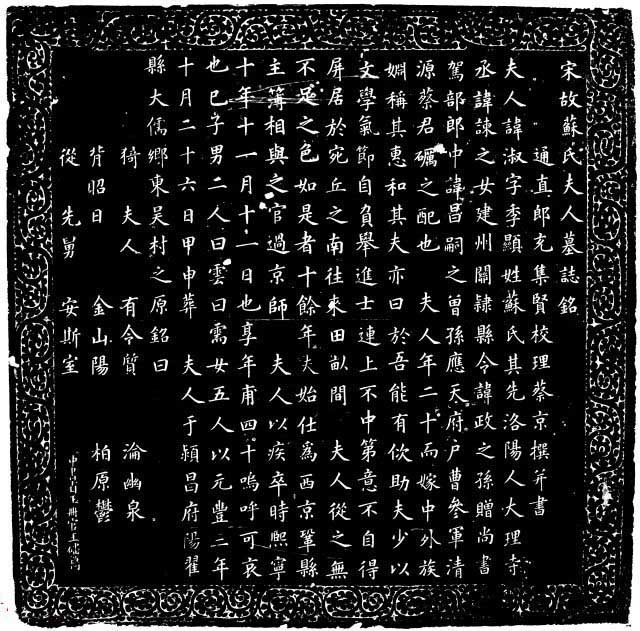 宋故蘇氏夫人墓誌銘
通直郎充集賢校理蔡京撰并書
夫人諱淑字季顯姓蘇氏其先洛陽人大理寺
丞諱諫之女建州關隸縣令諱政之孫贈尚書
駕部郎中諱昌嗣之曾孫應天府戶曹參軍清
源蔡君礪之配也 夫人年二十而嫁中外族
姻稱其惠和其夫亦曰於吾能有佽助夫少以
文學氣節自負舉進士連上不中第意不自得
屏居於宛丘之南往來田畝間 夫人從之無
不足之色如是者十餘年夫始仕為西京鞏縣
主簿相與之官過京師 夫人以疾卒時熙寧
十年十一月十一日也享年甫四十嗚呼可哀
也已子男二人曰雲曰需女五人以元豐二年
十月二十六日甲申葬 夫人于潁昌府陽翟
縣大儒鄉東吳村之原銘曰
猗 夫人 有令質 淪幽泉
背昭日 金山陽 柏原鬱
從 先舅 安斯室